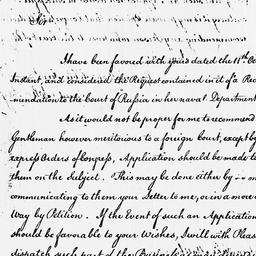 Sir,
I have been favored with yours dated the 11th Oc
Instant, and considered the Request contained in it of a Reco
mendation to the Court of Russia in her naval Department
As it would not be proper for me to recommend
Gentleman however meritorious to a foreign Court, except by
express Orders of Congress, Application should be made to
them on the Subject. This may be done either by
communicating to them your Letter to me, or in a more
Way by Petition. If the Event of such an Application
should be favorable to your Wishes, I will with Pleas
dispatch such part of the Business